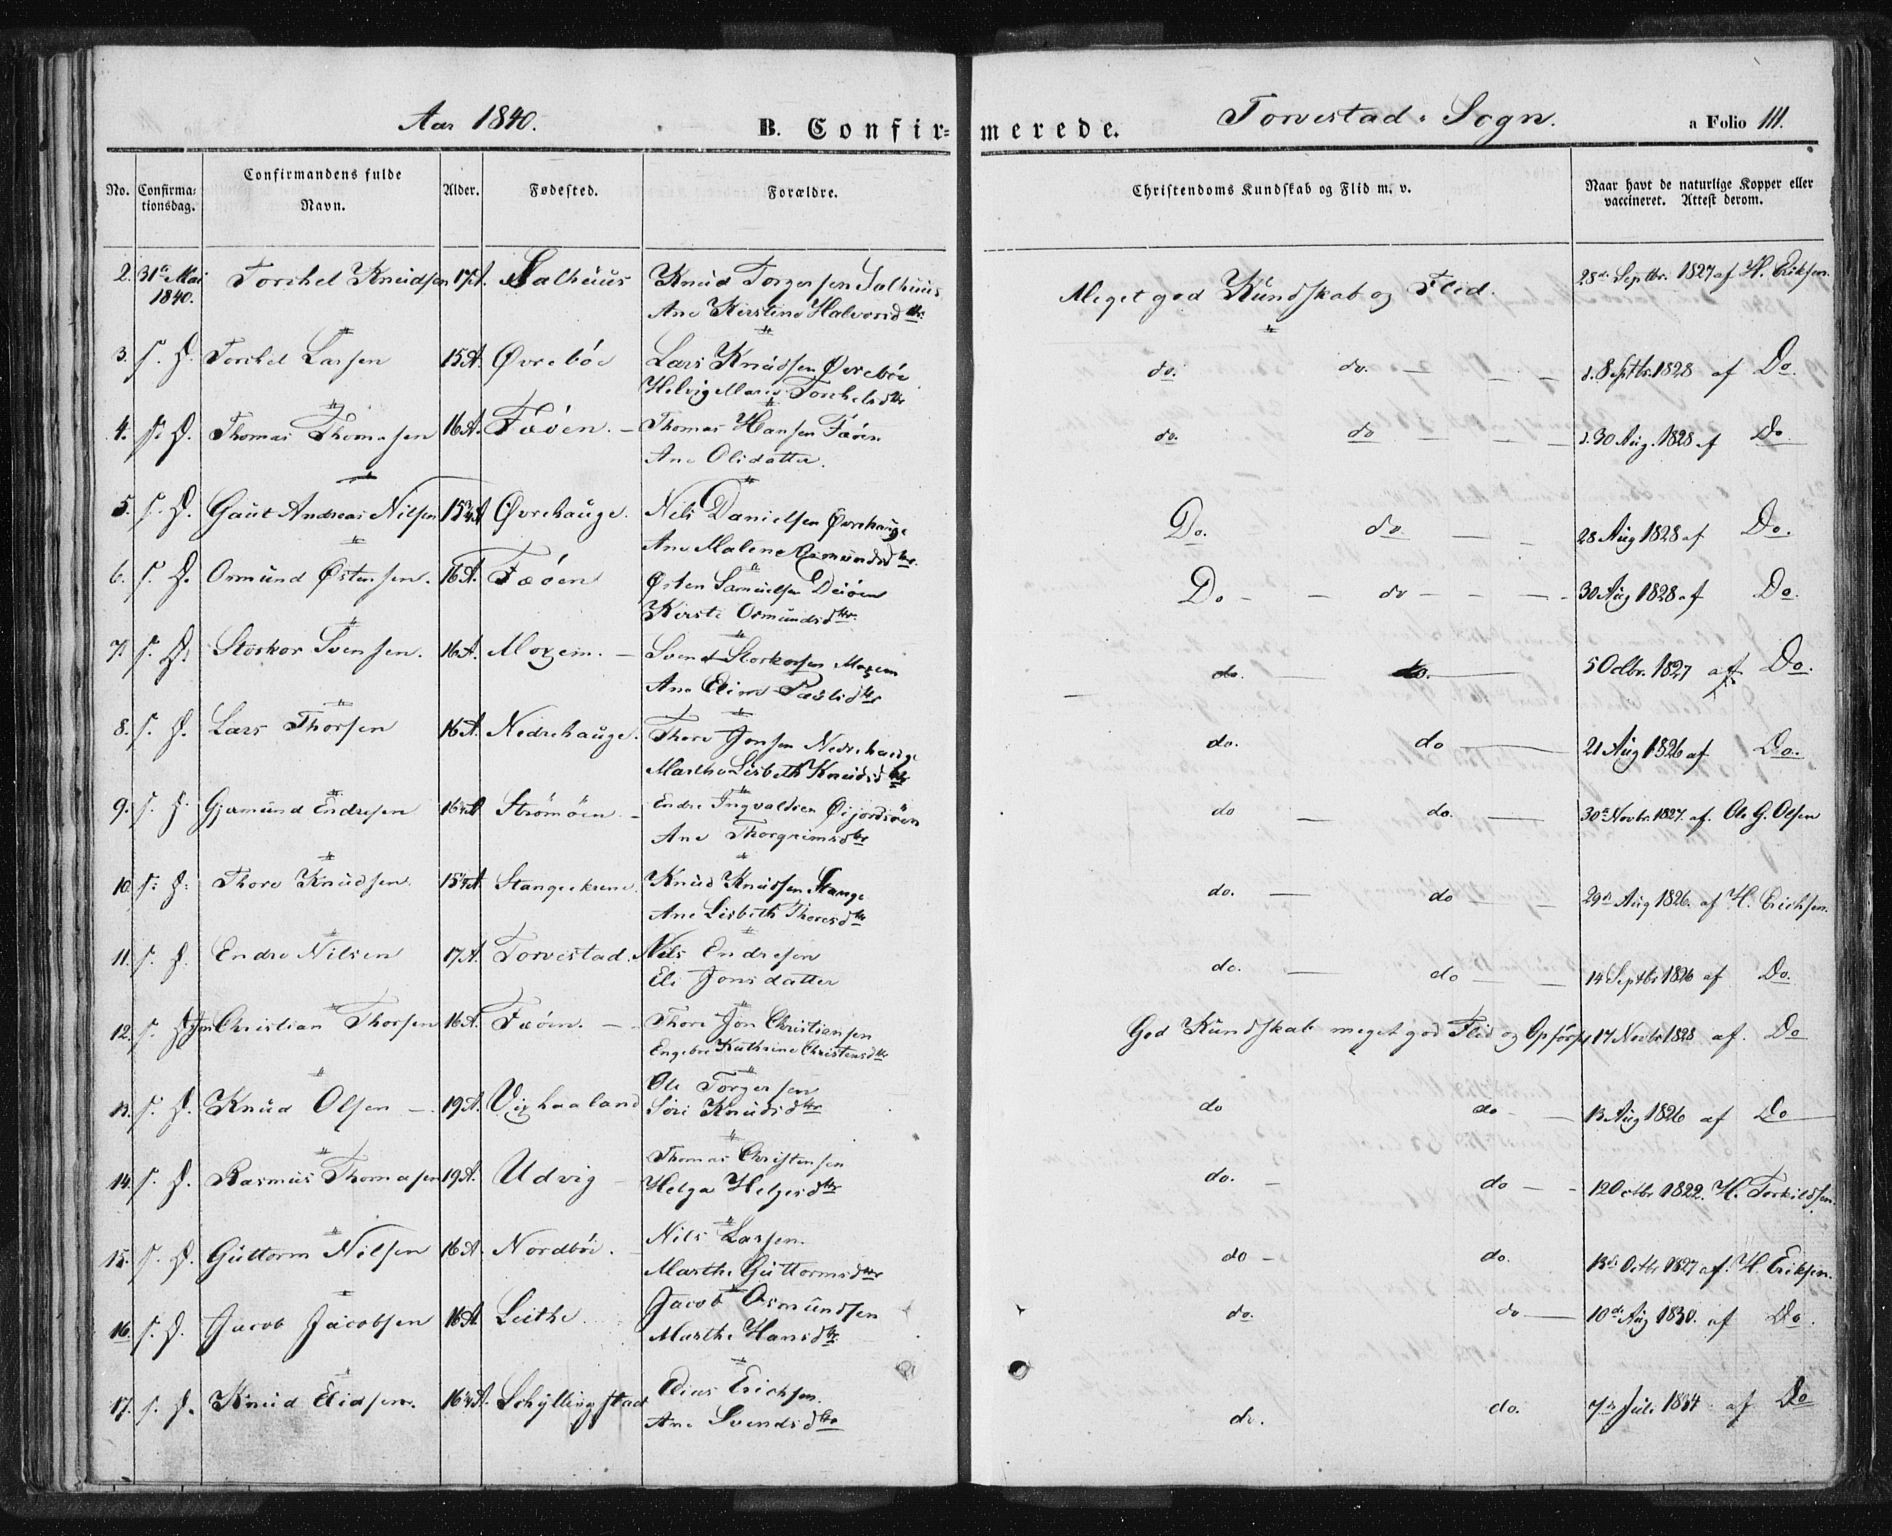 Aar 1840. B. Confirmerede. Torvestad Sogn. a Folio 111.
No. Confirmationsdag. Confirmandens fulde Navn. Alder. Fødested. Forældre. Christendoms Kundskab og Flid m. v. Naar havt de naturlige Kopper eller vaccineret. Attest derom.
2. 31te Mai 1840. Torchel Knudsen 17A. Salhuus Knud Torgersen Salhuus Meget god Kundskab og Flid. 28de Septbr. 1827 af H. Eriksen.
Ane Kirstine Halvorsdtr.
3. s. D. Torchel Larsen 15A. Øvrebøe Lars Knudsen Øvrebøe do. do. d. 8 Septbr. 1828 af Do.
Helvig Marie Torchelsdtr
4. s. D. Thomas Thomasen 16A. Fæøen. Thomas Hansen Fæøen do. do d. 30 Aug. 1828 af Do
Ane Olidatter.
5. s. D. Gaut Andreas Nilsen 15½A Øvrehauge. Nels Danielsen Øvrehauge Do. do. 28 Aug 1828 af Do.
Ane Malene Osmundsdtr.
6. s. D. Ormund Østensen. 16A. Fæøen Østen Samuelsen Do do 30 Aug 1828 af Do.
Kirsti Ormundsdtr.
7. s. D. Storkor Svensen. 16A. Moxeim. Svend Storkorsen Moxeim do. do. 5 Octbr. 1827 af Do.
Ane Elene Paulsdtr
8. s. D. Lars Thorsen 16A. Nedrehauge. Thore Jonsen Nedrehauge do. do 21 Aug 1826 af Do.
Marthe Lisbeth Knudsdtr
9. s. D. Gjermund Endresen 16½A Strømøen. Endre Ingvaldsen do do. 30te Novbr. 1827. af Ole G. Olsen
Ane Thorgrimsdtr
10. s. D. Thore Knudsen 15½A Knud Knudsen Stange do. do 29de Aug 1826. af H. Erichsen.
Ane Lisbeth Thoresdtr
11. s. D. Endre Nilsen 17A. Torvestad. Nils Endresen do. do 14 Septbr 1826 af Do.
Eli Jonsdatter
12. s. D. Jon Christian Thorsen 16A. Fæøen. Thore Jon Christiansen God Kundskab meget god Flid og Opførsel 17 Novbr 1828 af. Do
Engebor Kathrine Christensdtr
13. s. D. Knud Olsen 19A. Vixhaaland Ole Torgersen do do 13 Aug 1826 af Do
Siri Knudsdtr
14. s. D. Rasmus Thomasen 19A. Udvig Thomas Christensen do. do 12 Octbr 1822. H. Torkildsen.
Helga Helgesdtr
15. s. D. Guttorm Nilsen 16A. Nordbøe. Nils Larsen. do do. 13de Octbr 1827 af. H. Eriksen.
Marthe Guttormsdtr
16. s. D. Jacob Jacobsen 16A. Leithe. Jacob Osmundsen do. do 10de Aug 1830. af Do.
Marthe Hansdtr.
17. s. D. Knud Elidsen. 16½A. Schyllingstad Elias Erichsen. do. do. 7de Juli 1834 af Do
Ane Svendsdtr